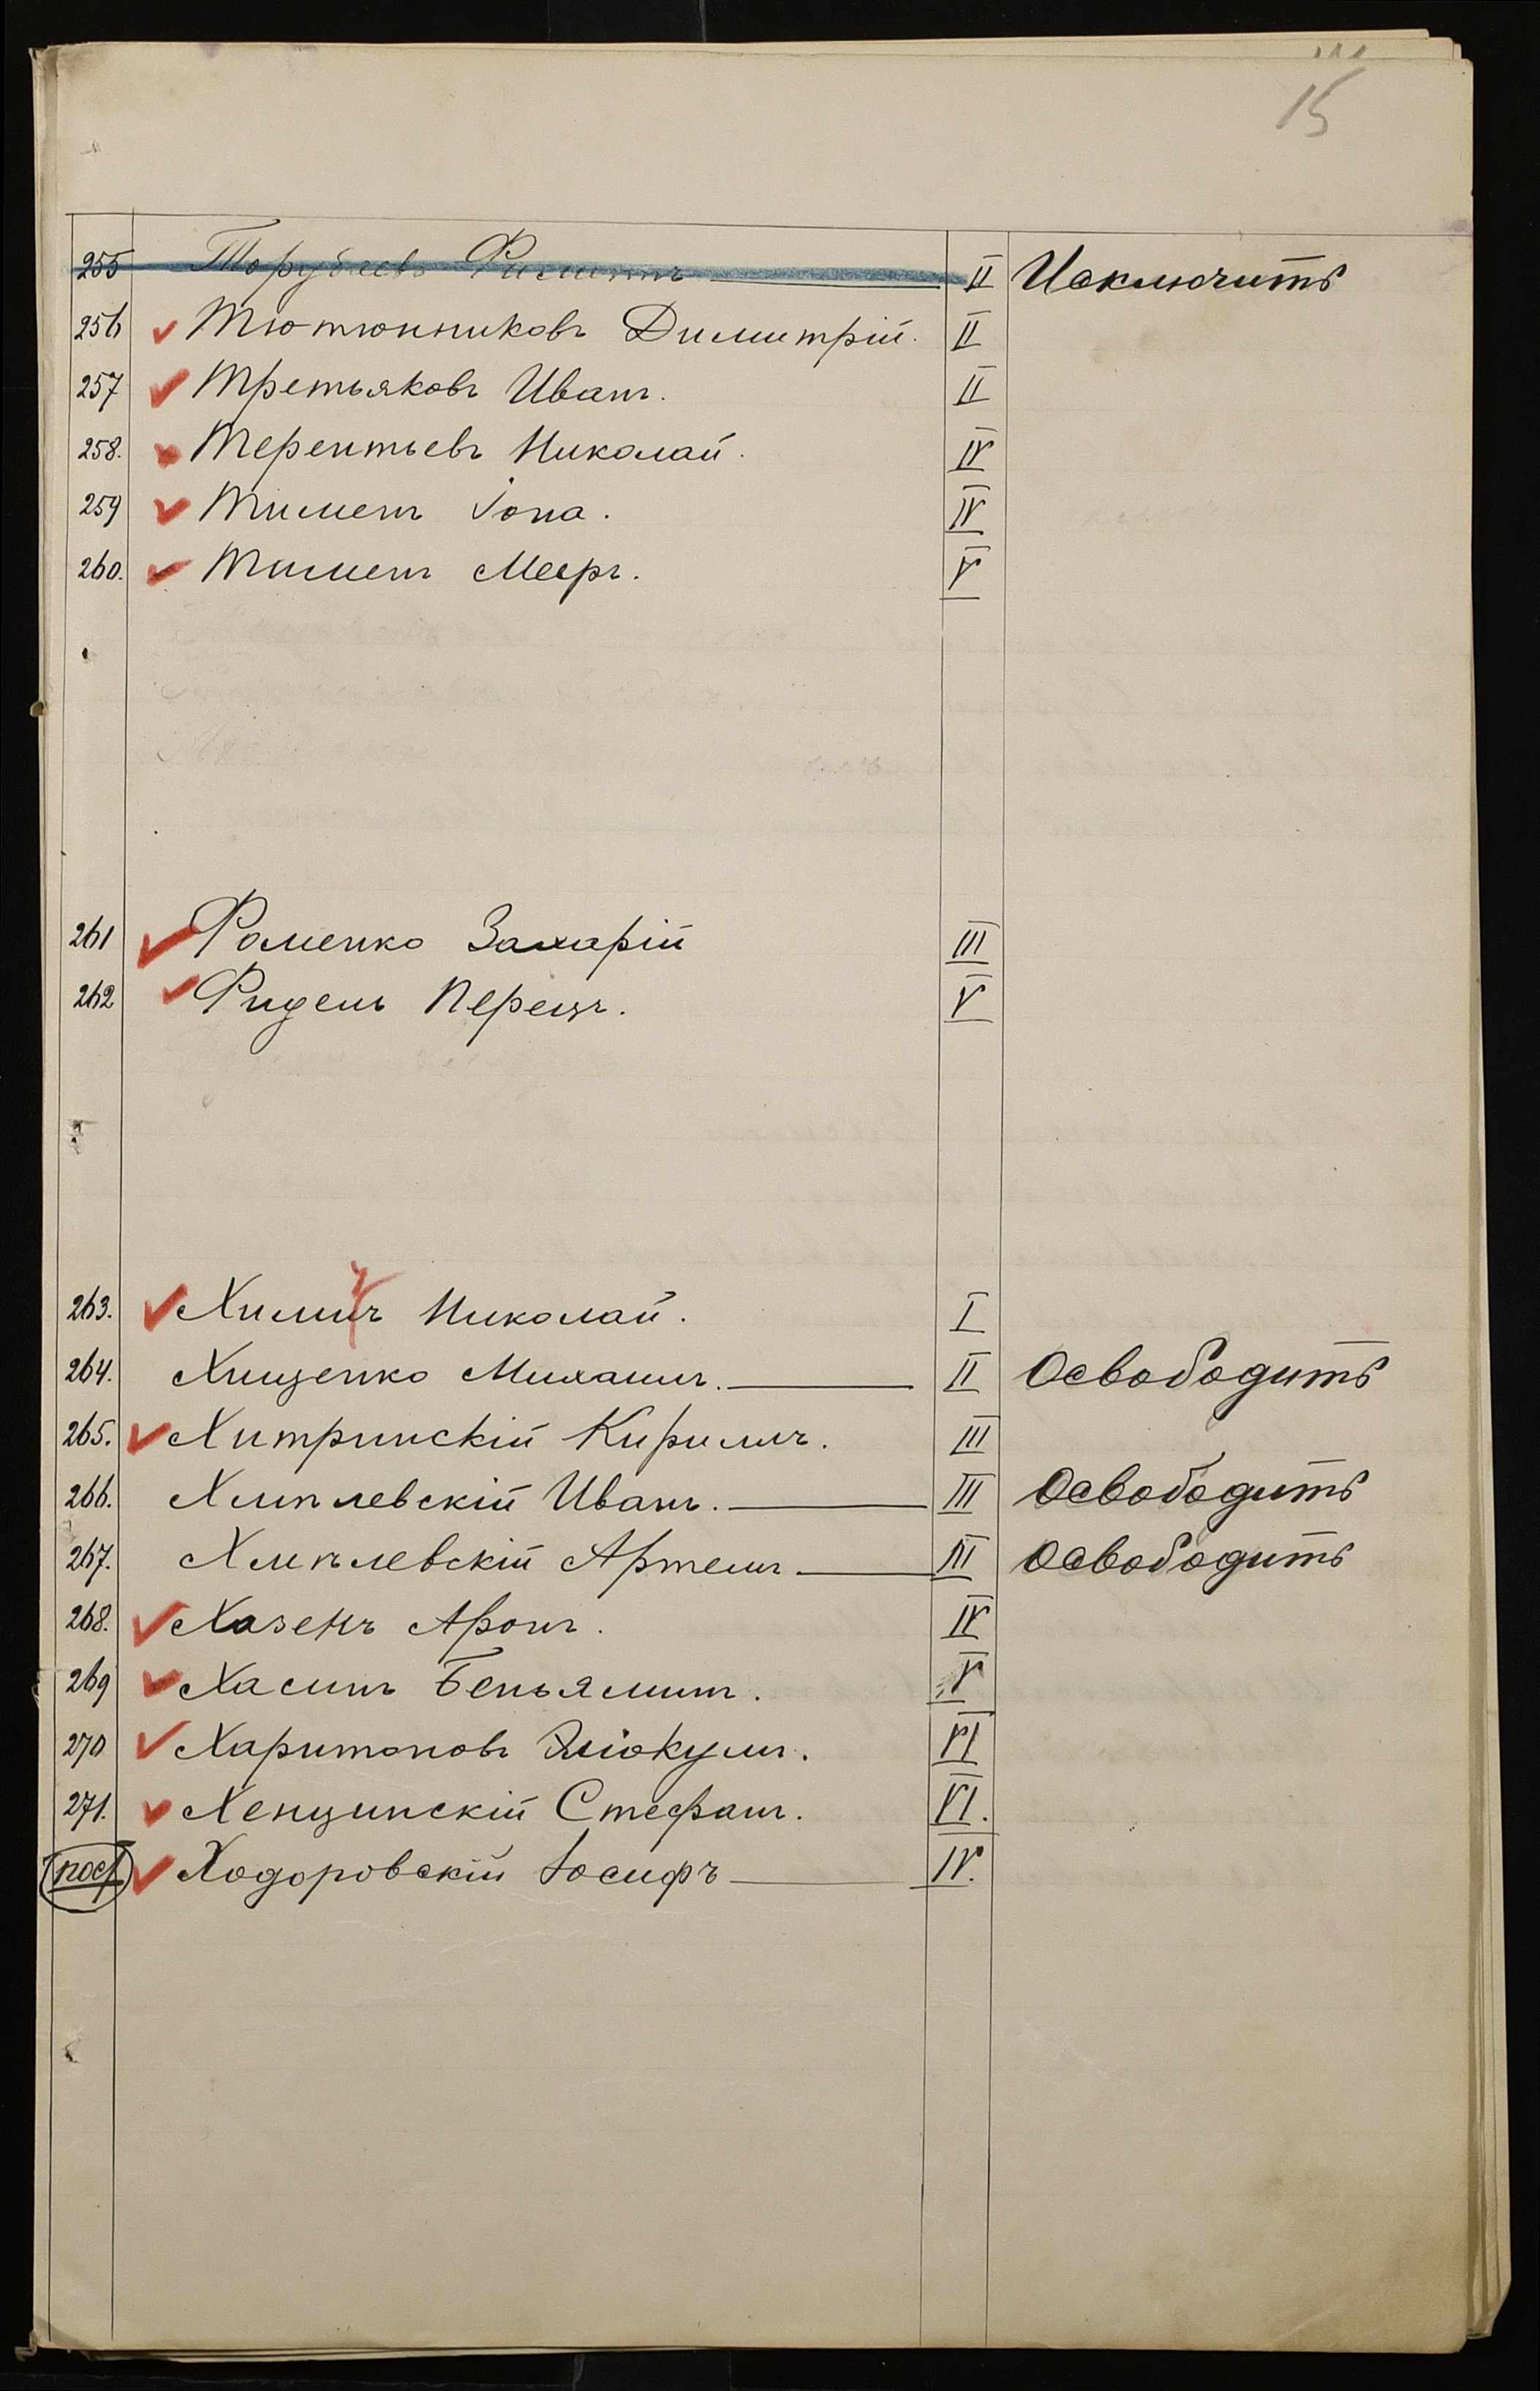 15
255 Торубаевъ Филиппъ II Исключить
256 Тютюнниковъ Димитрій. II
257 Третьяковъ Иванъ. II
258. Терентьевъ Николай. IV
259 Іона. IV
260. Мееръ. V
261 Фоменко Захарій III
262 Фидель Перецъ. V
263. Химичъ Николай. I
264. Хищенко Михаилъ. II Освободить
265. Хитринскій Кириллъ. III
266. Хмплевскій Иванъ. III Освободить
267. Хмплевскій Артемъ III Освободить
268. Хазенъ Аронъ. IV
269 Хасинъ Беньяминъ. V
270 Харитоновъ VI
271. Хенцинскій Стефанъ. VI.
пост Ходоровскій Іосифъ IV.